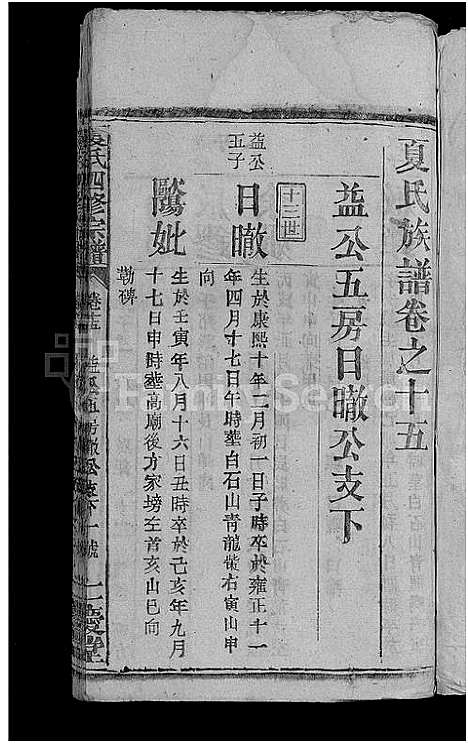 夏氏族譜卷之十五
益公五房日暾公支下
十三世
益公
五子
日暾
生於康熙十年二月初一日子時卒於雍正十一
年四月十七日午時塟白石山青龍嘴右寅山申
向
歐妣
生於壬寅年八月十六日丑時卒於己亥年九月
十七日申時塟高廟後方家塝左首亥山巳向
勒碑
夏氏四修宗譜
卷十五
益公五房暾公支下一號
慶堂
FamilySearch